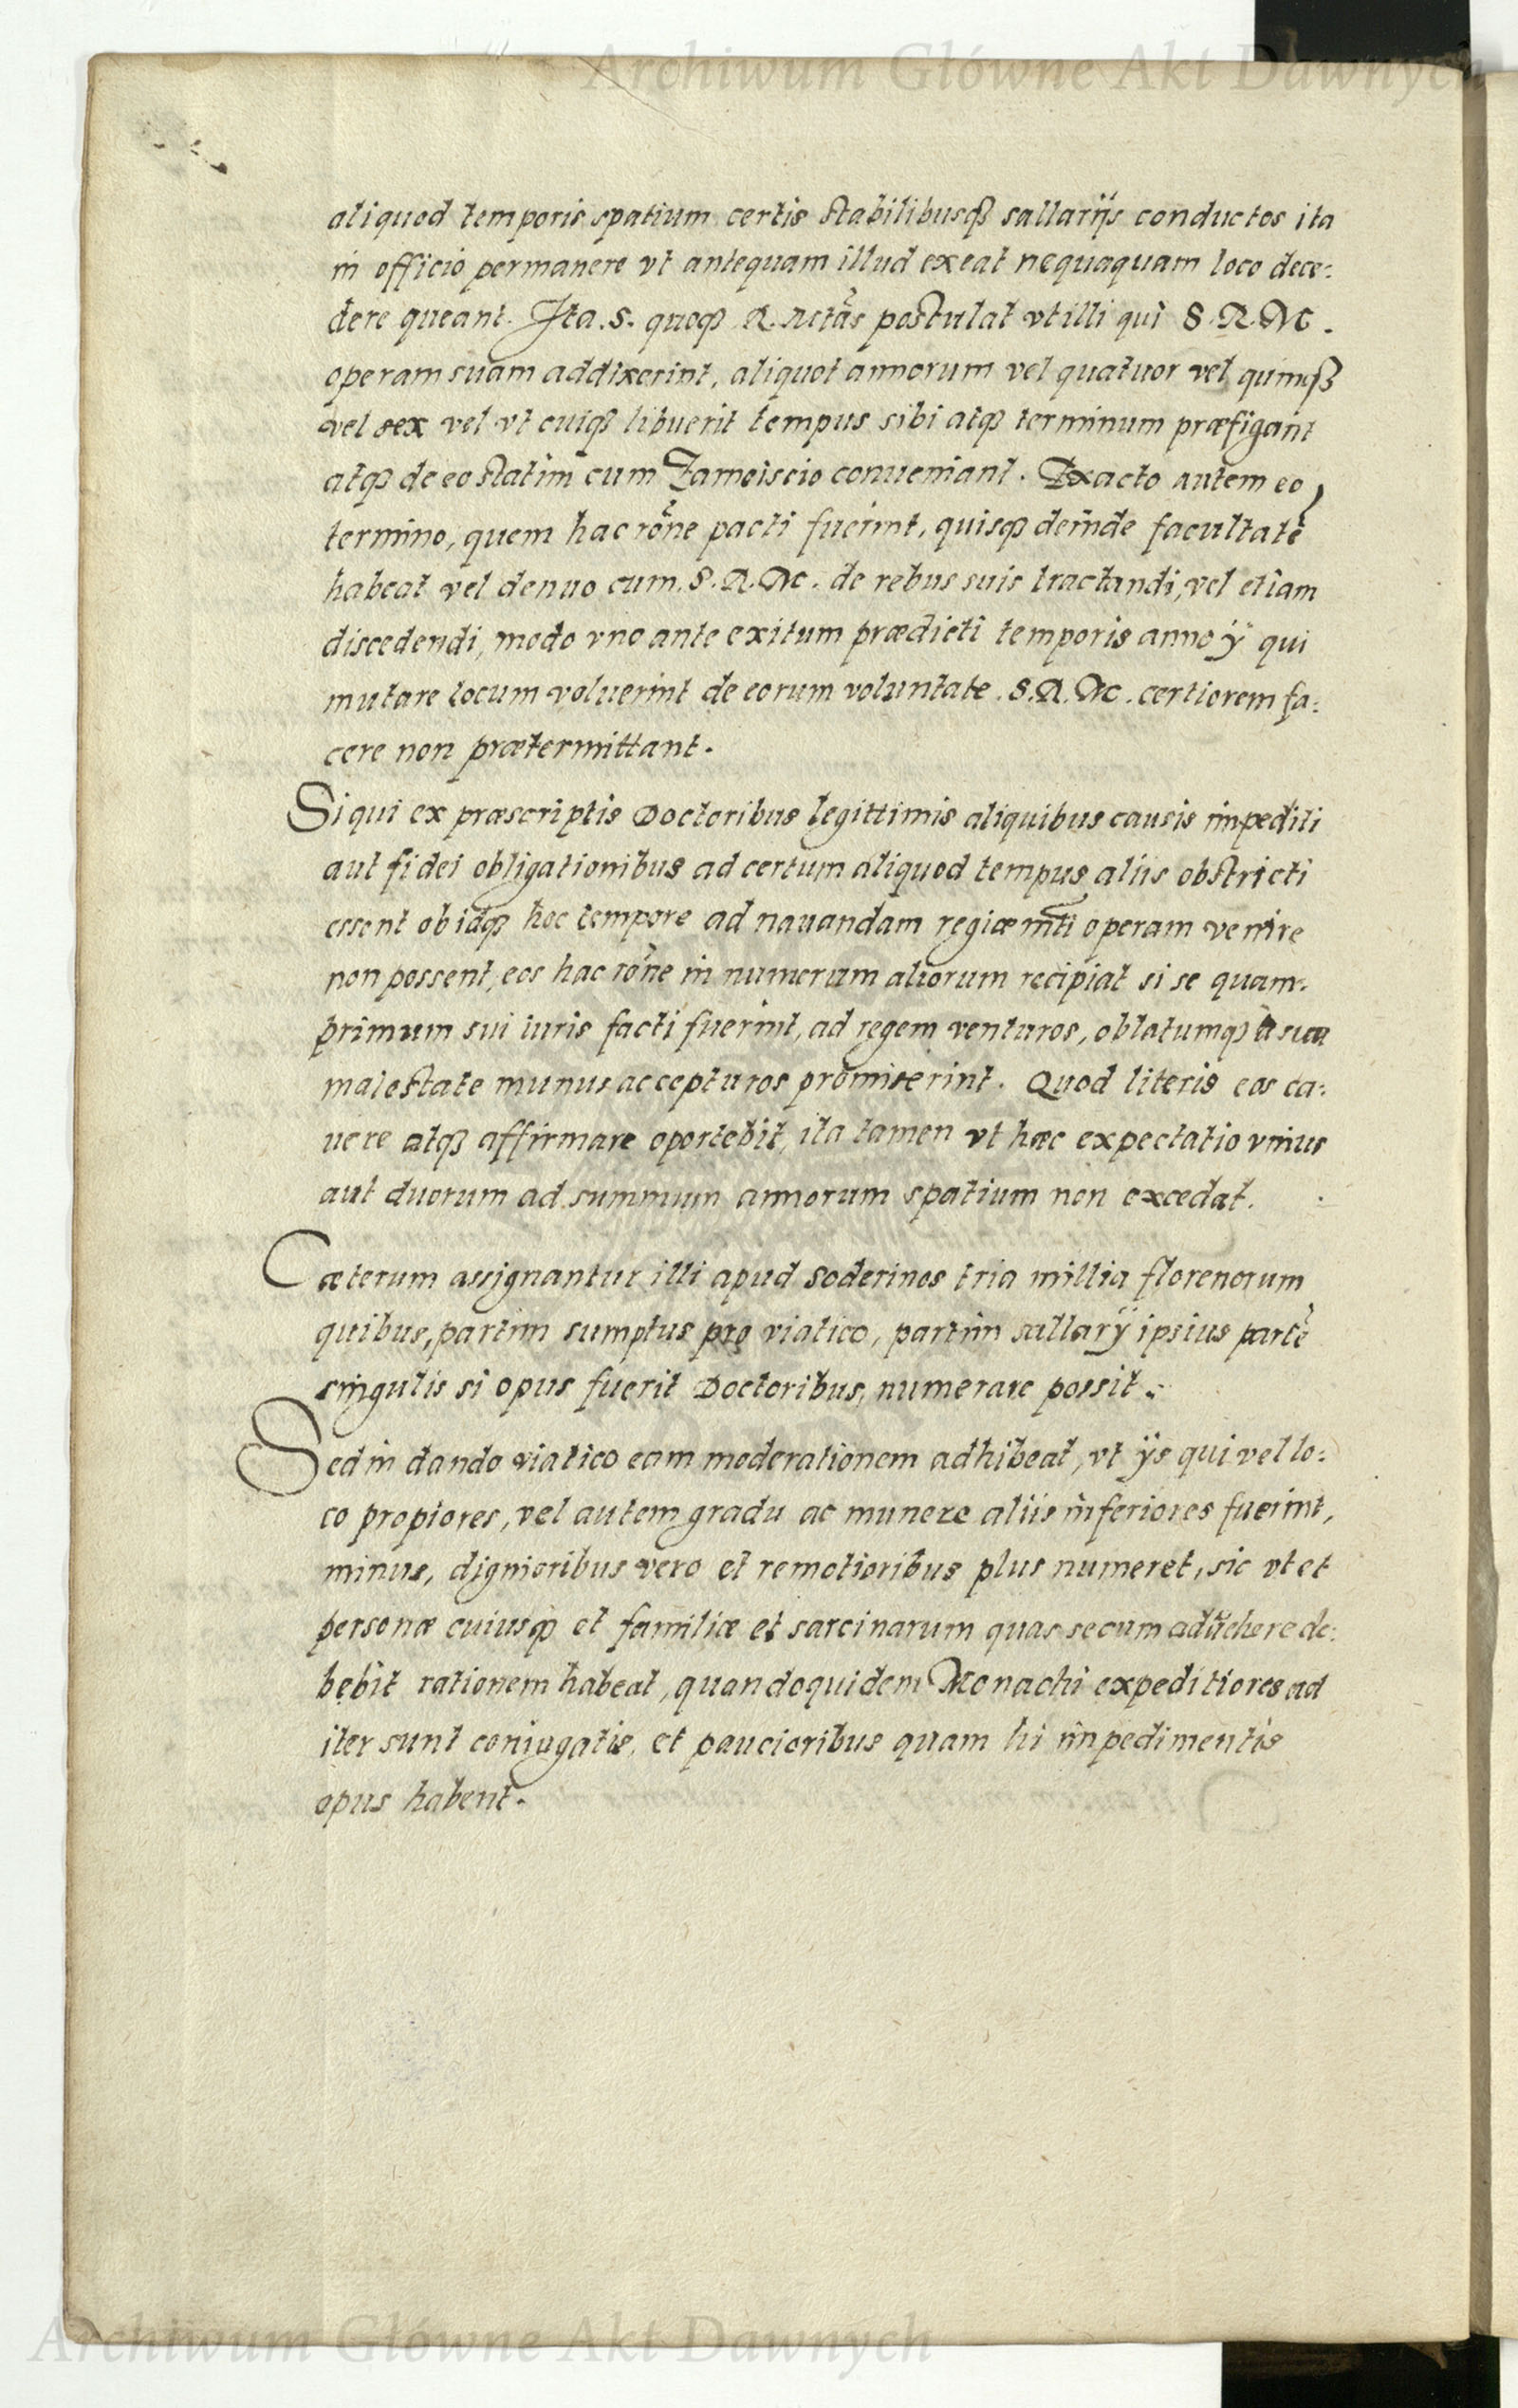 Archiwum Główne Akt Dawnych
aliquod temporis spatium certis stabilibusq₃ sallarijs conductos ita
in officio permanere vt antequam illud exeat nequaquam loco dece:
dere queant. Ita .S. quoq₃ R. Mtãs postulat vt illi qui S. R. M.
operam suam addixerint, aliquot annorum vel quatuor vel quinq₃
vel sex vel vt cuiq₃ libuerit tempus sibi atq₃ terminum præfigant
atq₃ de eo statim cum Zamoiscio conueniant. Exacto autem eo
termino, quem hac rõne pacti fuerint, quisq₃ deinde facultatẽ
habeat vel denuo cum .S. R. M. de rebus suis tractandi, vel etiam
discedendi, modo vno ante exitum prædicti temporis anno ÿ qui
mutare locum voluerint de eorum voluntate .S. R. M. certiorem fa:
cere non prætermittant.
Si qui ex præscriptis Doctoribus legittimis aliquibus causis impediti
aut fidei obligationibus ad certum aliquod tempus aliis obstricti
essent ob idq₃ hoc tempore ad nauandam regiæ mti operam venire
non possent, eos hac rõne in numerum aliorum recipiat si se quam:
primum sui iuris facti fuerint, ad regem venturos, oblatumq₃ a sua
maiestate munus accepturos promiserint. Quod literis eos ca:
uere atq₃ affirmare oportebit, ita tamen vt hæc expectatio vnius
aut duorum ad summum annorum spatium non excedat.
Cæterum assignantur illi apud Soderinos tria millia florenorum
quibus, partim sumptus pro viatico, partim sallarÿ ipsius partẽ
singulis si opus fuerit Doctoribus, numerare possit.
Sed in dando viatico eam moderationem adhibeat, vt ijs qui vel lo:
co propiores, vel autem gradu ac munere aliis inferiores fuerint,
minus, dignioribus vero et remotioribus plus numeret, sic vt et
personæ cuiusq₃ et familiæ et sarcinarum quas secum aduehere de:
bebit rationem habeat, quandoquidem Monachi expeditiores ad
iter sunt coniugatis, et paucioribus quam hi impedimentis
opus habent.
Archiwum Główne Akt Dawnych